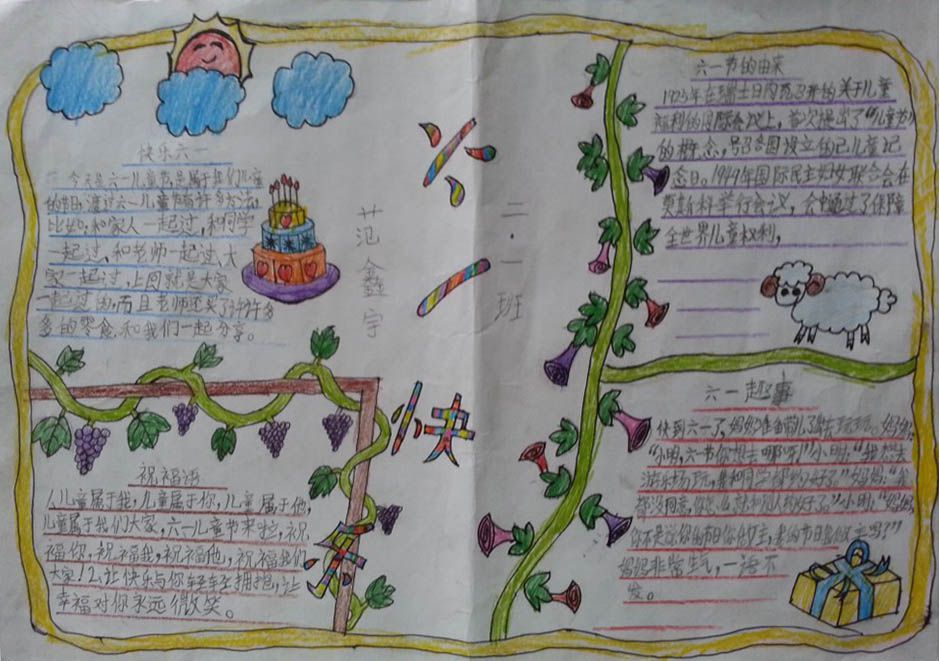 快乐六一
今天是六一儿童节是属于我们儿童
的节日,渡过六一儿童节有许多方法,
比如:和家人一起过,和同学
一起过,和老师一起过,大
家一起过,上同就是大家
一起过的,而且老师还买了许许多
多的零食和我们一起分享。
六一快乐
范鑫宇
二·一班
祝福语
1、儿童属于我,儿童属于你,儿童属于他,
儿童属于我们大家,六一儿童节来啦,祝
福你,祝福我,祝福他,祝福我们
大家!2、让快乐与你轻轻拥抱,让
幸福对你永远微笑。
六一节的由来
1925年在瑞士日内瓦召开的关于儿童
福利的国际会议上,首次提出了“儿童节”
的概念,号召各国设立自己儿童纪
念日。1949年国际民主妇女联合会在
莫斯科举行会议,会中通过了保障
全世界儿童权利,
六一趣事
快到六一了,妈妈准备带小明去玩玩。妈妈:
“小明,六一节你想去哪呀”小明:“我想去
游乐场玩,我和同学都约好了。”妈妈:“我
都没同意,你怎么就和别人约好了。”小明:“妈妈,
你不是说你的节日你做主,我的节日我做主吗?”
妈妈非常生气,一语不
发。